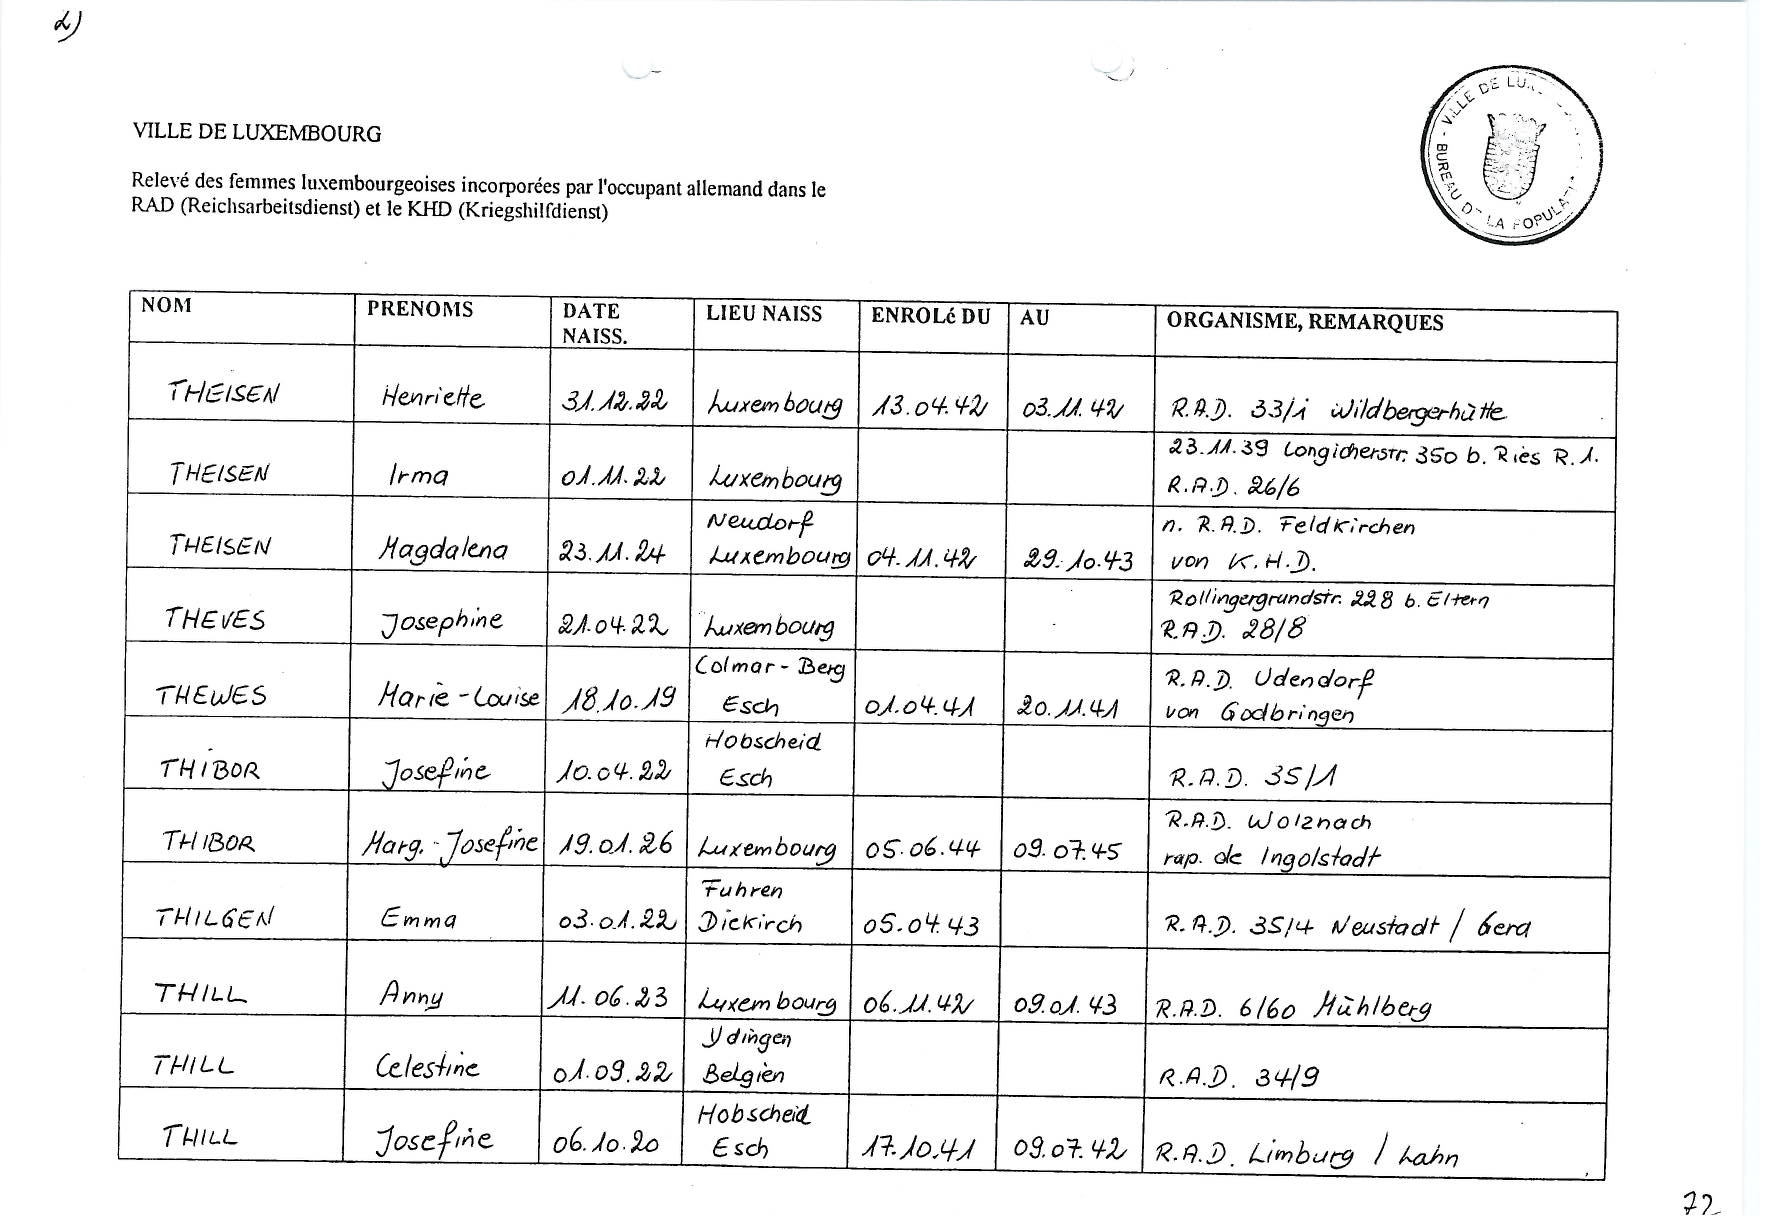 2)
VILLE DE LUXEMBOURG
BUREAU DE LA POPULAT
VILLE DE LUX
Relevé des femmes luxembourgeoises incorporées par l'occupant allemand dans le
RAD (Reichsarbeitsdienst) et le KHD (Kriegshilfdienst)
NOM PRENOMS DATE NAISS. LIEU NAISS ENROLé DU AU ORGANISME, REMARQUES
THEISEN Henriette 31.12.22 Luxembourg 13.04.42 03.11.42 R.A.D. 33/1 Wildbergerhütte
THEISEN Irma 01.11.22 Luxembourg 23.11.39 Longicherstr. 350 b. Ries R.1.
R.A.D. 26/6
THEISEN Magdalena 23.11.24 Neudorf Luxembourg 04.11.42 29.10.43 n. R.A.D. Feldkirchen
von K.H.D.
THEVES Josephine 21.04.22 Luxembourg Rollingergrundstr. 228 b. Eltern
R.A.D. 28/8
THEWES Marie-Louise 18.10.19 Colmar-Berg Esch 01.04.41 20.11.41 R.A.D. Udendorf
von Godbringen
THIBOR Josefine 10.04.22 Hobscheid Esch R.A.D. 35/1
THIBOR Marg.-Josefine 19.01.26 Luxembourg 05.06.44 09.07.45 R.A.D. Wolznach
rap. de Ingolstadt
THILGEN Emma 03.01.22 Fuhren Diekirch 05.04.43 R.A.D. 35/4 Neustadt / Gera
THILL Anny 11.06.23 Luxembourg 06.11.42 09.01.43 R.A.D. 6/60 Mühlberg
THILL Celestine 01.09.22 Ydingen Belgien R.A.D. 34/9
THILL Josefine 06.10.20 Hobscheid Esch 17.10.41 09.07.42 R.A.D. Limburg / Lahn
72